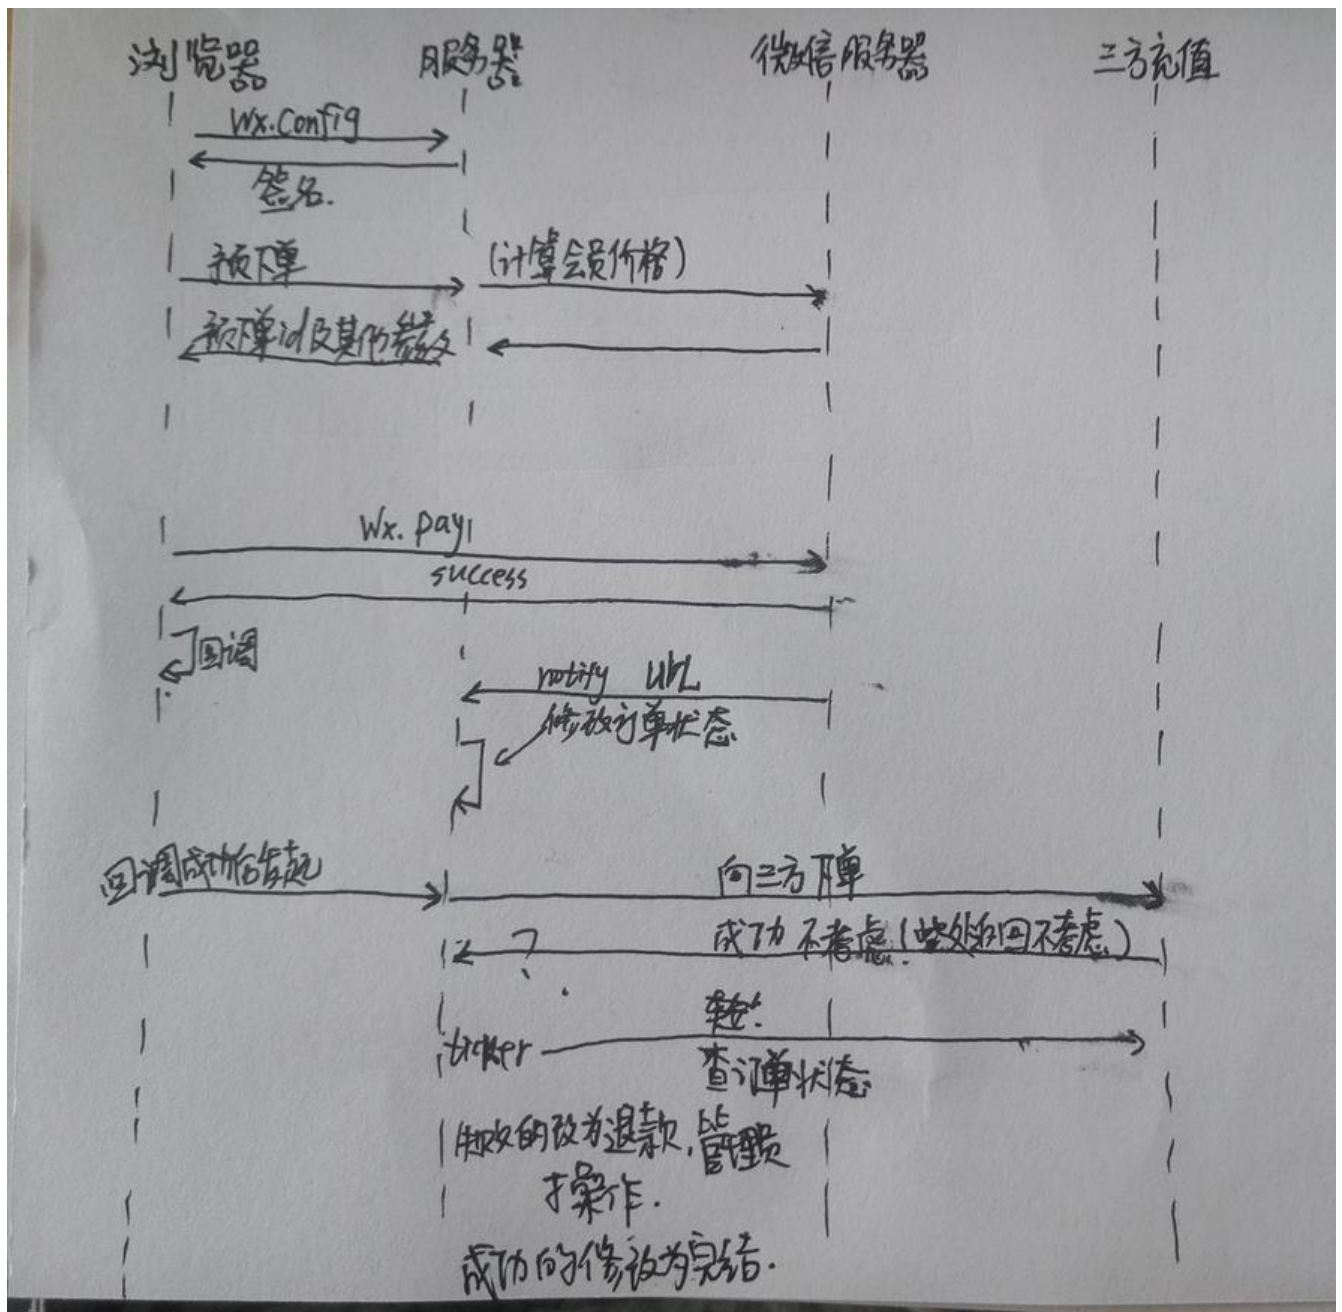 浏览器 服务器 微信服务器 三方充值
Wx.Config
签名.
预下单 (计算会员价格)
预下单id及其他参数
Wx. pay
success
回调
notify URL
修改订单状态
回调成功后发起 向三方下单
成功 不考虑 (些处的回不考虑)
?
ticker
查订单状态
失败的改为退款,管理员
操作.
成功的修改为完结.